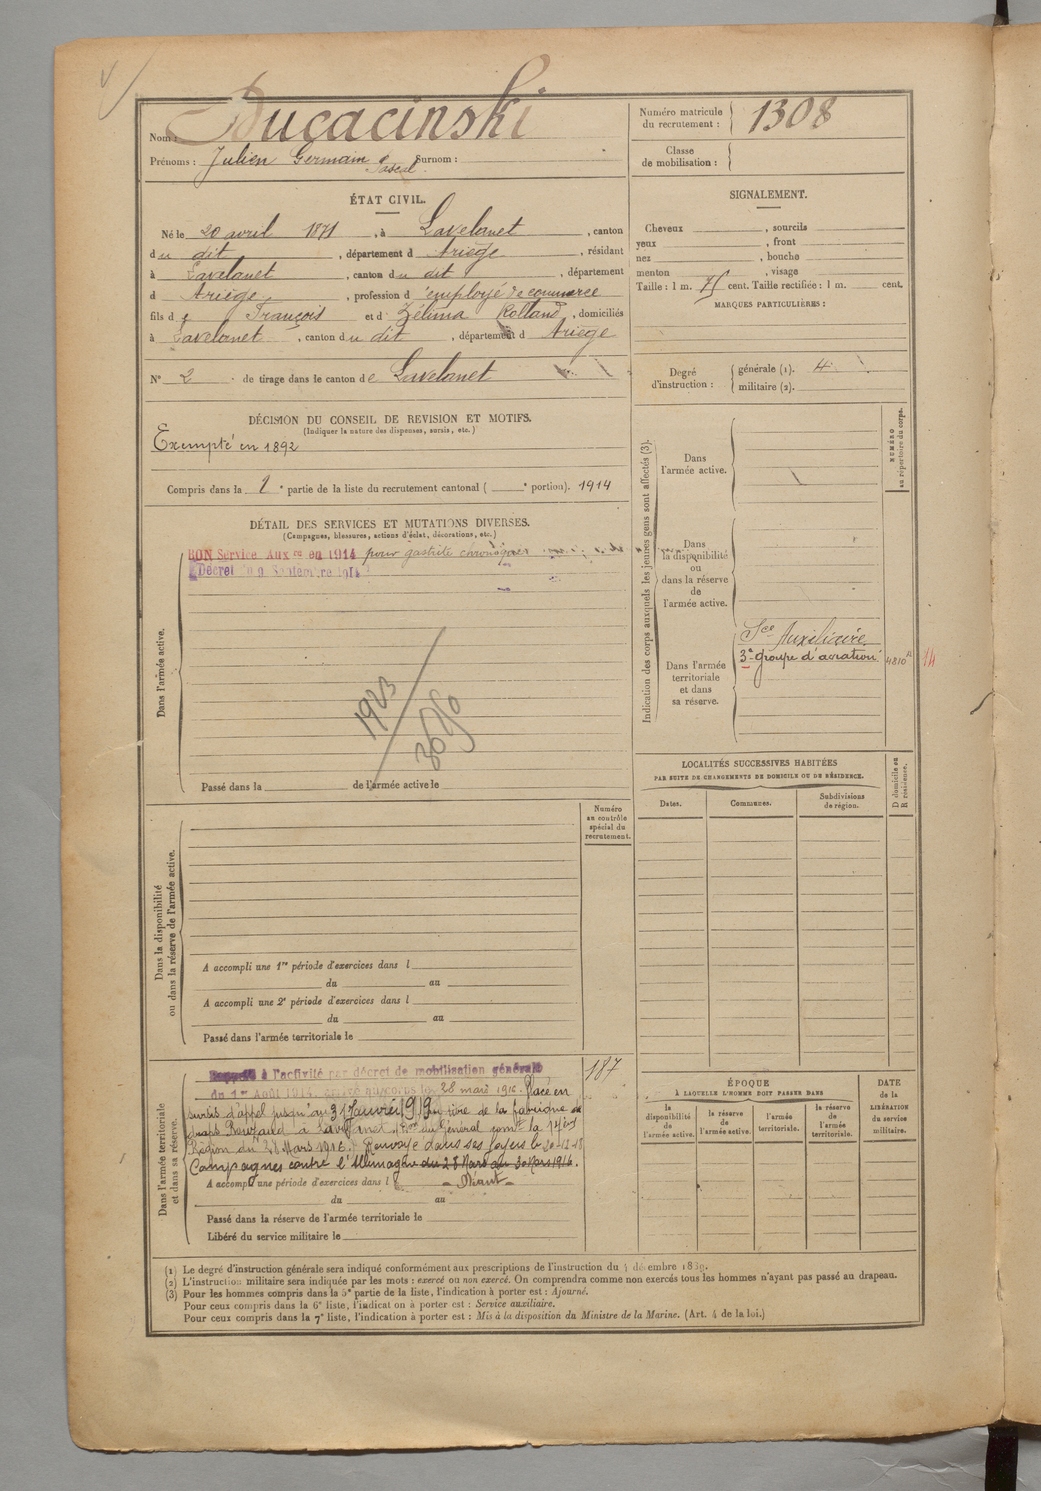 Nom : Ducacinski
Prénoms : Julien Germain Pascal Surnom :
Numéro matricule du recrutement : 1308
Classe de mobilisation :
ÉTAT CIVIL.
Né le 20 avril 1871, à Lavelanet, canton
du dit, département d Ariège, résidant
à Lavelanet, canton du dit, département
d Ariège, profession d'employé de commerce
fils de François et d Zélima Rolland, domiciliés
à Lavelanet, canton du dit, département d Ariège
N° 2 de tirage dans le canton de Lavelanet
SIGNALEMENT.
Cheveux , sourcils
yeux , front
nez , bouche
menton , visage
Taille : 1 m. 75 cent. Taille rectifiée : 1 m. cent.
MARQUES PARTICULIÈRES :
Degré d'instruction : générale (1). 4
militaire (2).
DÉCISION DU CONSEIL DE REVISION ET MOTIFS.
(Indiquer la nature des dispenses, sursis, etc.)
Exempté en 1892
Compris dans la 1e partie de la liste du recrutement cantonal ( e portion). 1914
DÉTAIL DES SERVICES ET MUTATIONS DIVERSES.
(Campagnes, blessures, actions d'éclat, décorations, etc.)
BON Service Auxre en 1914 pour gastrite chronique
Décret du 9 Septembre 1914
Dans l'armée active.
1923
Passé dans la de l'armée active le
Indication des corps auxquels les jeunes gens sont affectés (3).
NUMÉRO au répertoire du corps.
Dans l'armée active.
Dans la disponibilité ou dans la réserve de l'armée active.
Dans l'armée territoriale et dans sa réserve.
Sce Auxiliaire
3e groupe d'aviation
4810
14
LOCALITÉS SUCCESSIVES HABITÉES
PAR SUITE DE CHANGEMENTS DE DOMICILE OU DE RÉSIDENCE.
Dates. Communes. Subdivisions de région.
D domicile ou R résidence.
Numéro au contrôle spécial du recrutement.
Dans la disponibilité ou dans la réserve de l'armée active.
A accompli une 1re période d'exercices dans l
du au
A accompli une 2e période d'exercices dans l
du au
Passé dans l'armée territoriale le
Dans l'armée territoriale et dans sa réserve.
187
Rappelé à l'activité par décret de mobilisation générale
du 1er Août 1914, arrivé au corps le 28 mars 1916. Placé en
sursis d'appel jusqu'au 31 Janvier 1919 au titre de la fabrique de
draps à Lavelanet. du Général comt la 17e
Région du 28 Mars 1916. Renvoyé dans ses foyers le 30-12-18
Campagnes contre l'Allemagne du 28 Mars au 30 Mars 1916.
A accompli une période d'exercices dans l Néant
du au
Passé dans la réserve de l'armée territoriale le
Libéré du service militaire le
ÉPOQUE
À LAQUELLE L'HOMME DOIT PASSER DANS
la disponibilité de l'armée active. la réserve de l'armée active. l'armée territoriale. la réserve de l'armée territoriale.
DATE de la LIBÉRATION du service militaire.
(1) Le degré d'instruction générale sera indiqué conformément aux prescriptions de l'instruction du 4 décembre 1889.
(2) L'instruction militaire sera indiquée par les mots : exercé ou non exercé. On comprendra comme non exercés tous les hommes n'ayant pas passé au drapeau.
(3) Pour les hommes compris dans la 5e partie de la liste, l'indication à porter est : Ajourné.
Pour ceux compris dans la 6e liste, l'indication à porter est : Service auxiliaire.
Pour ceux compris dans la 7e liste, l'indication à porter est : Mis à la disposition du Ministre de la Marine. (Art. 4 de la loi.)